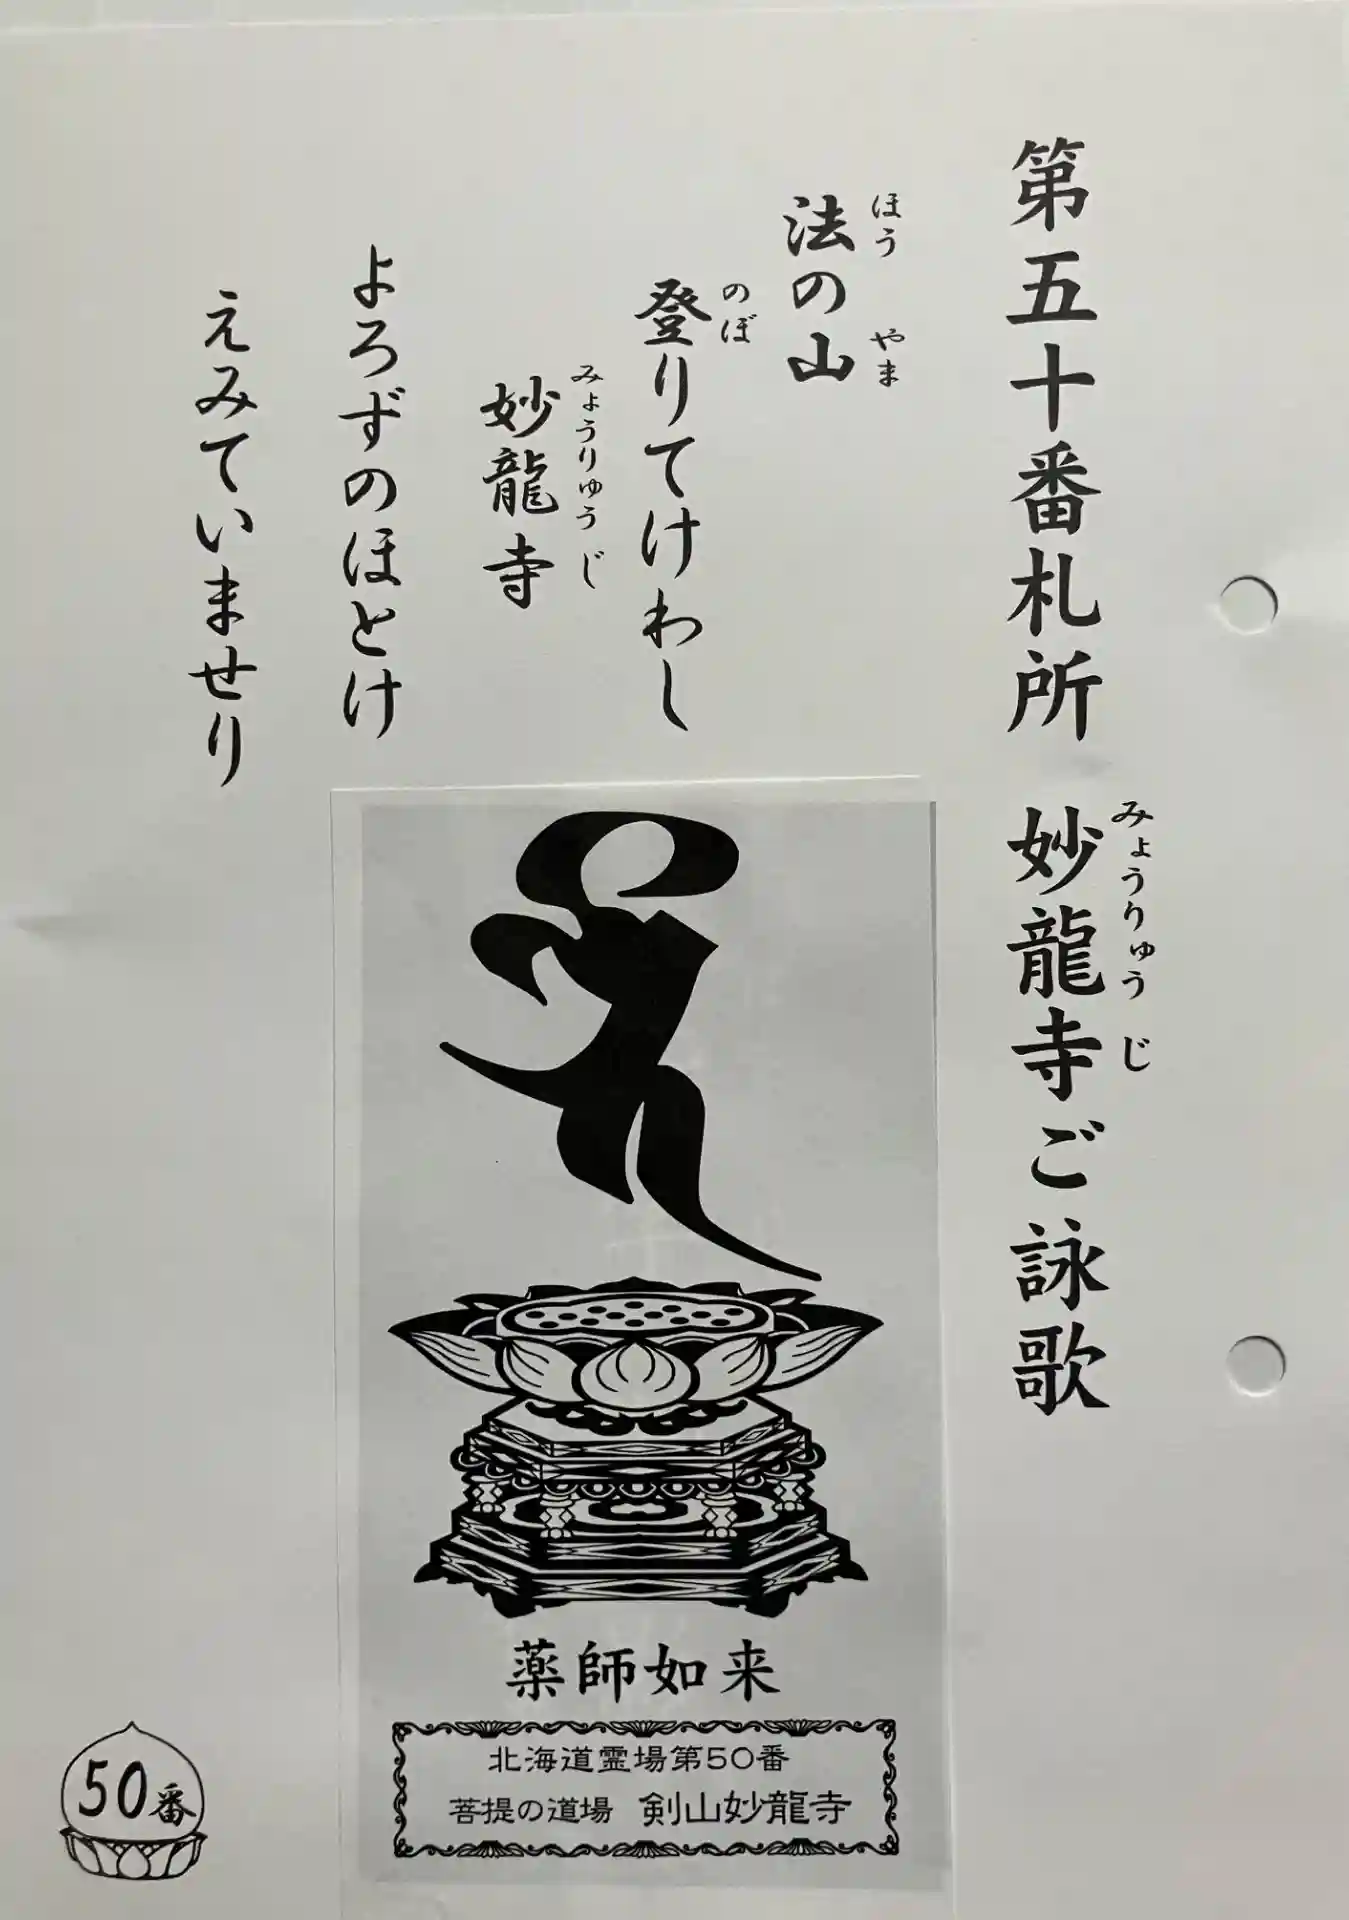 第五十番札所 妙龍寺ご詠歌
みょうりゅうじ
法の山
ほう やま
登りてけわし
のぼ
妙龍寺
みょうりゅうじ
よろずのほとけ
えみていませり
薬師如来
北海道霊場第50番
菩提の道場 剣山妙龍寺
50番